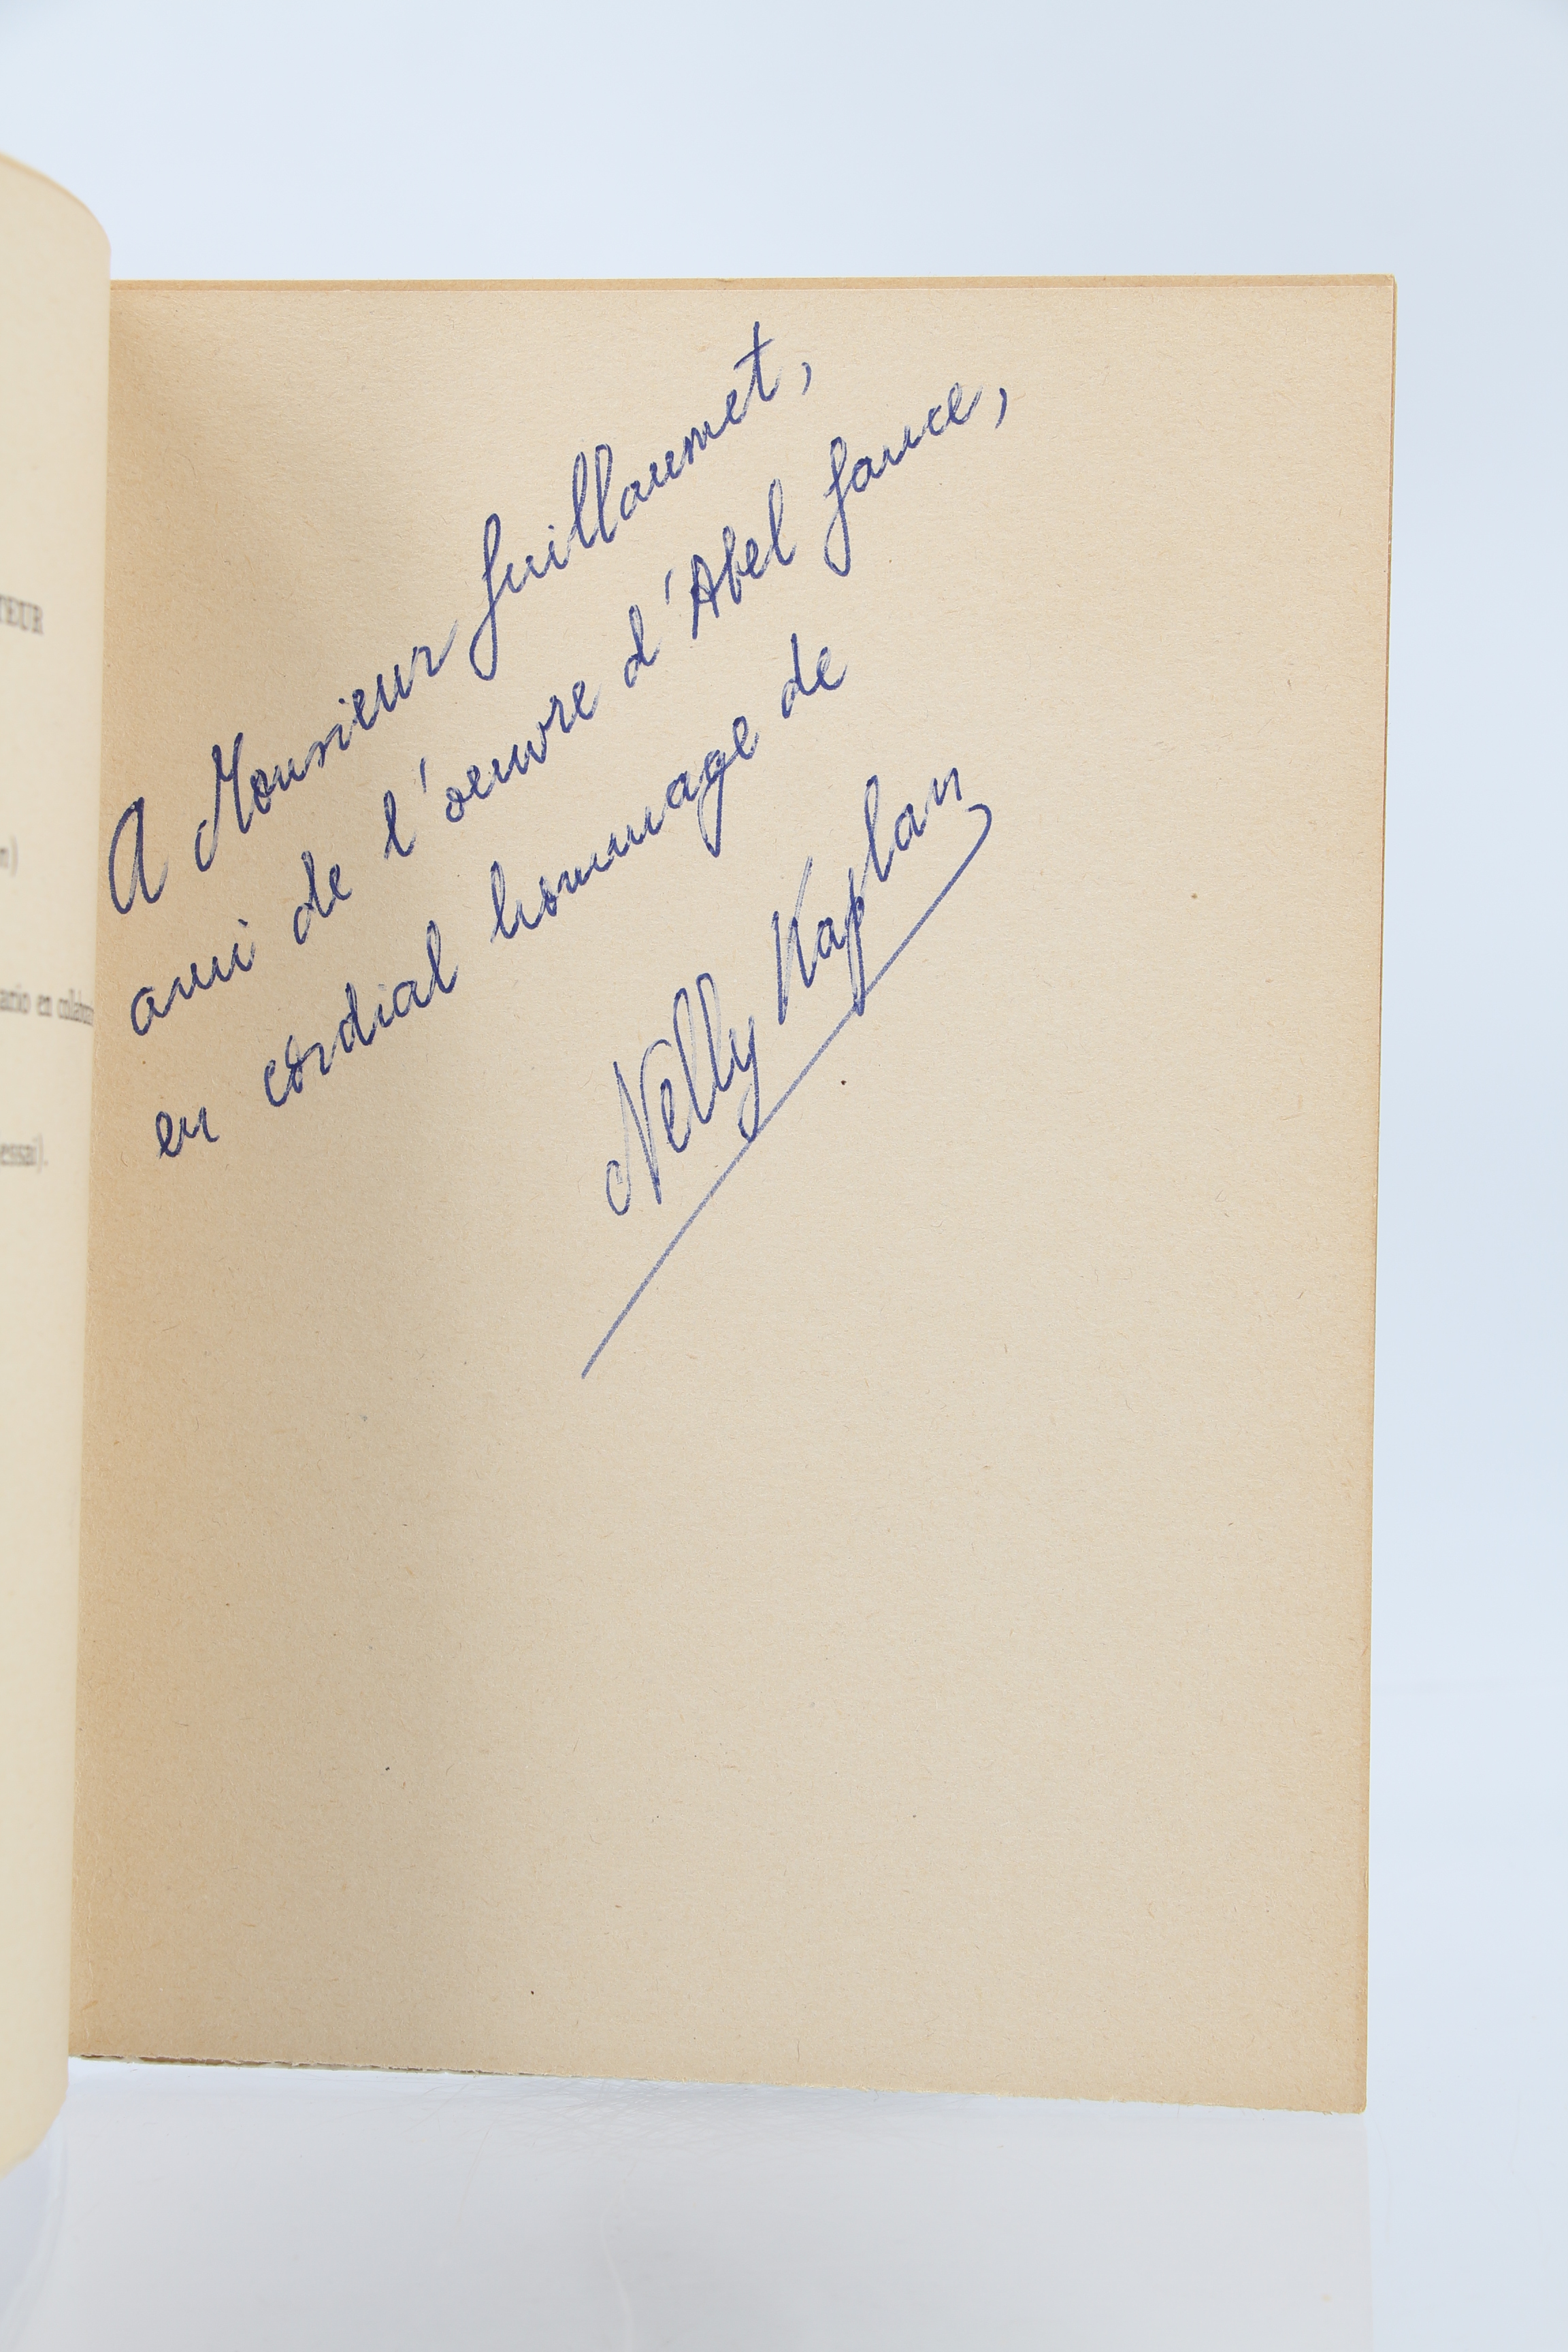 TEUR
n)
ario en collabora
essai).
A Monsieur Guillaumet,
ami de l'oeuvre d'Abel Gance,
en cordial hommage de
Nelly Kaplan